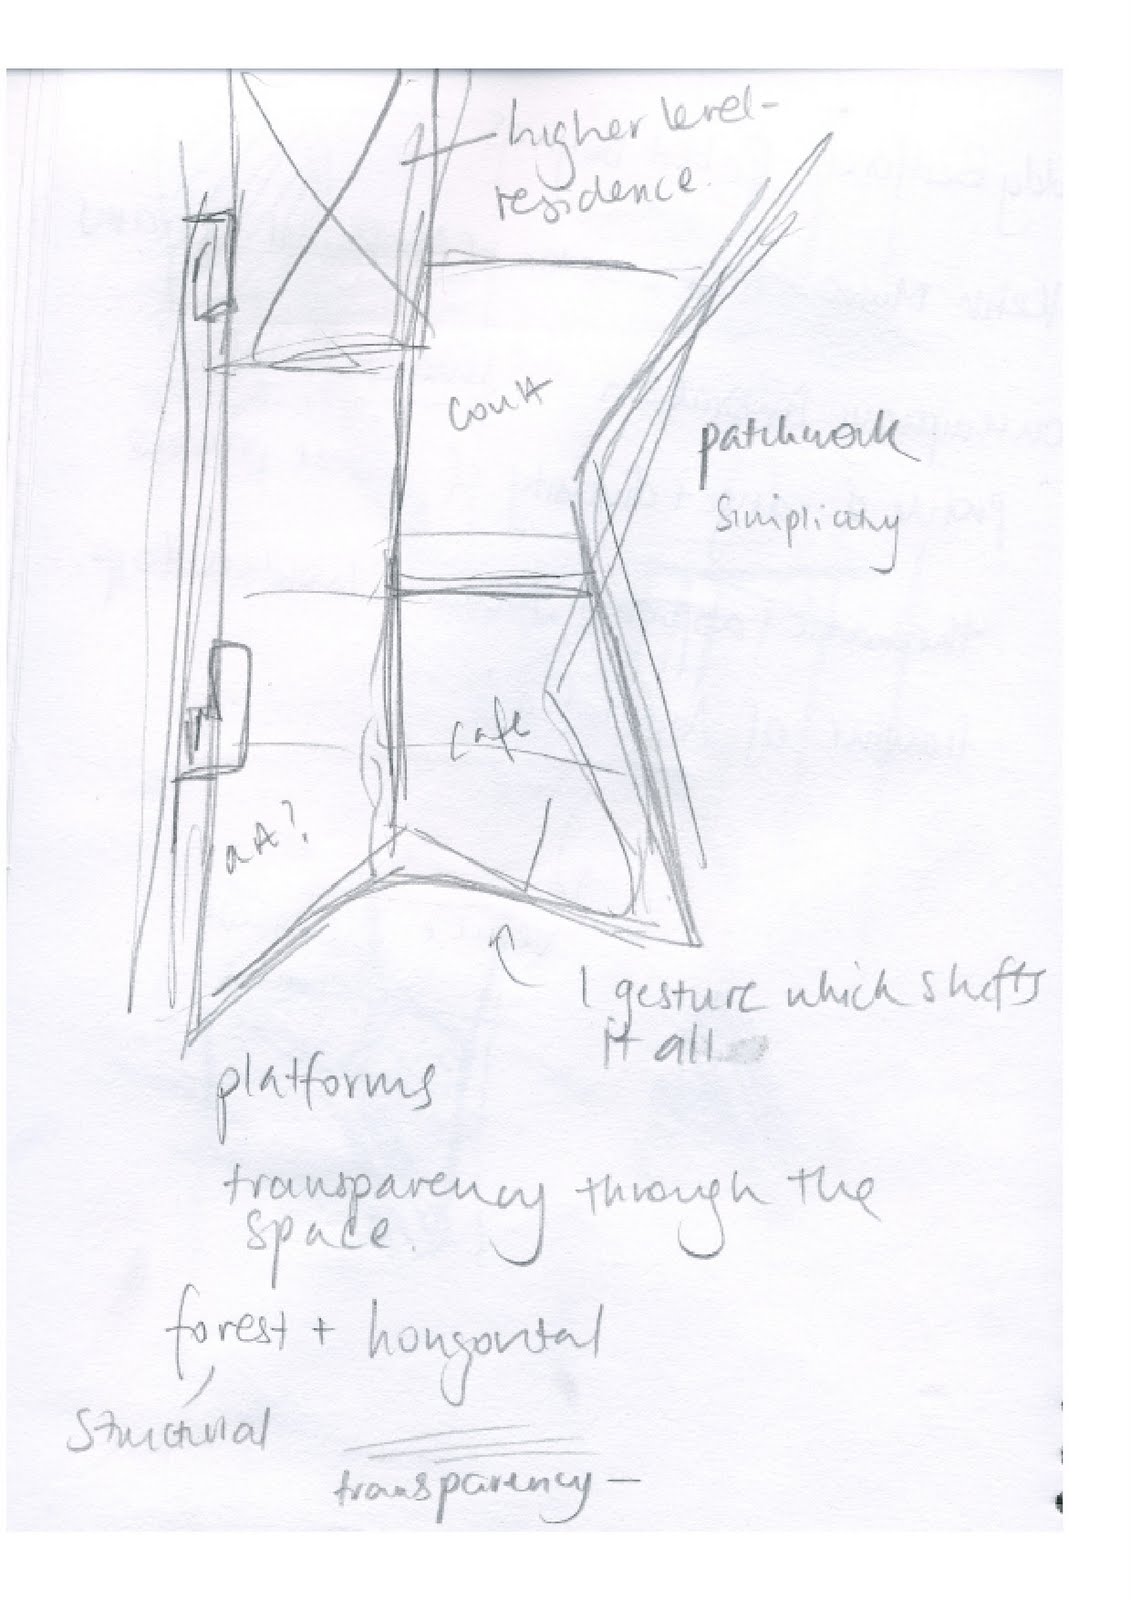 higher level -
residence.
court
patchwork
simplicity
cafe
art?
1 gesture which shifts
it all.
platforms
transparency through the
space.
forest + horizontal
structural
transparency —